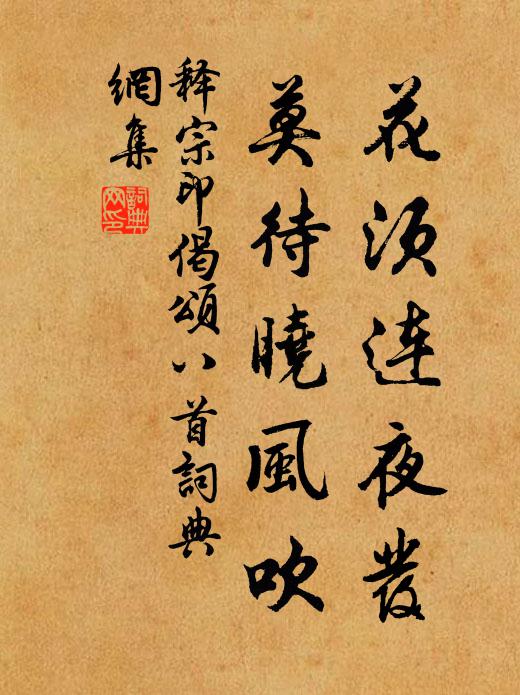 花须连夜發
莫待曉風吹
释宗印偈頌八首詞典
網集
詞典
网印